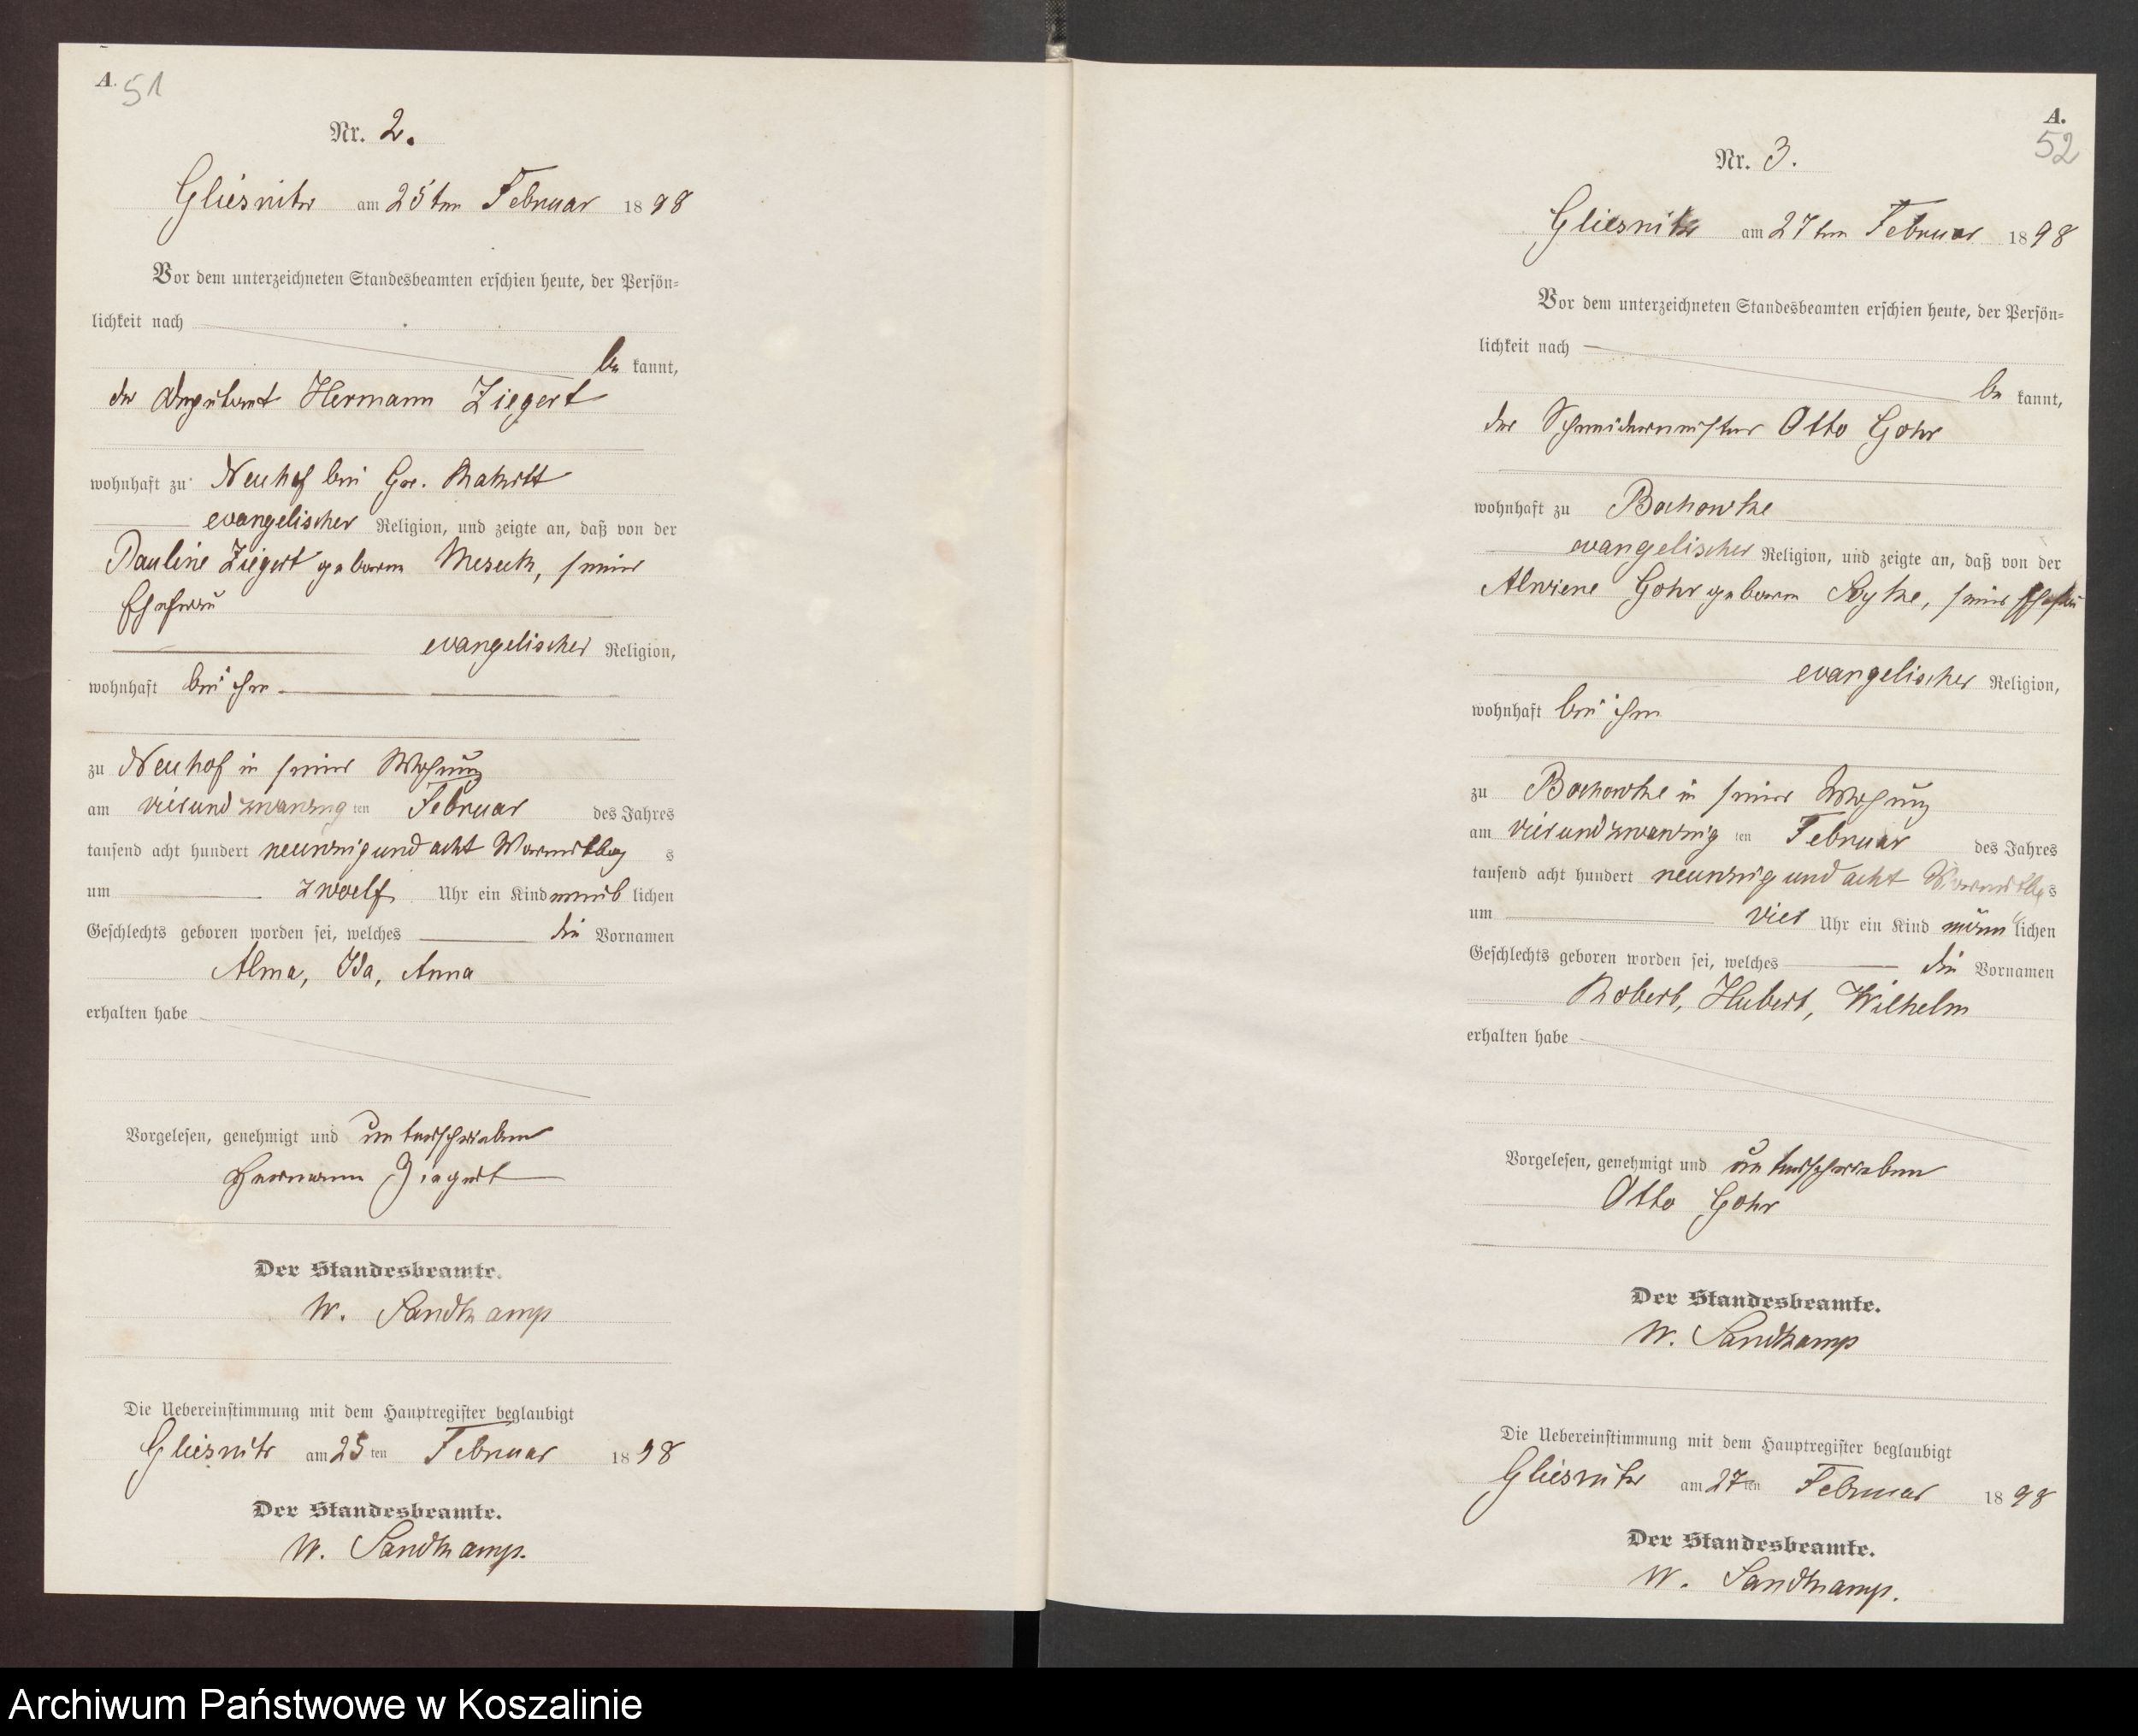 A.
51
Nr. 2.
Gliesnitz am 25ten Februar 1898
Vor dem unterzeichneten Standesbeamten erschien heute, der Persön-
lichkeit nach
be kannt,
der Hermann Ziegert
wohnhaft zu Neuhof bei Gr.
evangelischer Religion, und zeigte an, daß von der
Pauline Ziegert geboren, seiner
Ehefrau
evangelischer Religion,
wohnhaft bei ihm
zu Neuhof in seiner Wohnung
am vierundzwanzig ten Februar des Jahres
tausend acht hundert neunzig und acht Vormittag s
um zwoelf Uhr ein Kind weib lichen
Geschlechts geboren worden sei, welches die Vornamen
Alma, Ida, Anna
erhalten habe
Vorgelesen, genehmigt und unterschrieben
Hermann Ziegert
Der Standesbeamte.
W. Sandkamp
Die Uebereinstimmung mit dem Hauptregister beglaubigt
Gliesnitz am 25 ten Februar 1898
Der Standesbeamte.
W. Sandkamp.
A.
52
Nr. 3.
Gliesnitz am 27ten Februar 1898
Vor dem unterzeichneten Standesbeamten erschien heute, der Persön-
lichkeit nach
be kannt,
der Otto Gohr
wohnhaft zu Bochowke
evangelischer Religion, und zeigte an, daß von der
Alwiene Gohr geboren, seiner Ehefrau
evangelischer Religion,
wohnhaft bei ihm
zu Bochowke in seiner Wohnung
am vierundzwanzig ten Februar des Jahres
tausend acht hundert neunzig und acht Vormittags
um vier Uhr ein Kind männ lichen
Geschlechts geboren worden sei, welches die Vornamen
Robert, Hubert, Wilhelm
erhalten habe
Vorgelesen, genehmigt und unterschrieben
Otto Gohr
Der Standesbeamte.
W. Sandkamp
Die Uebereinstimmung mit dem Hauptregister beglaubigt
Gliesnitz am 27ten Februar 1898
Der Standesbeamte.
W. Sandkamp.
Archiwum Państwowe w Koszalinie